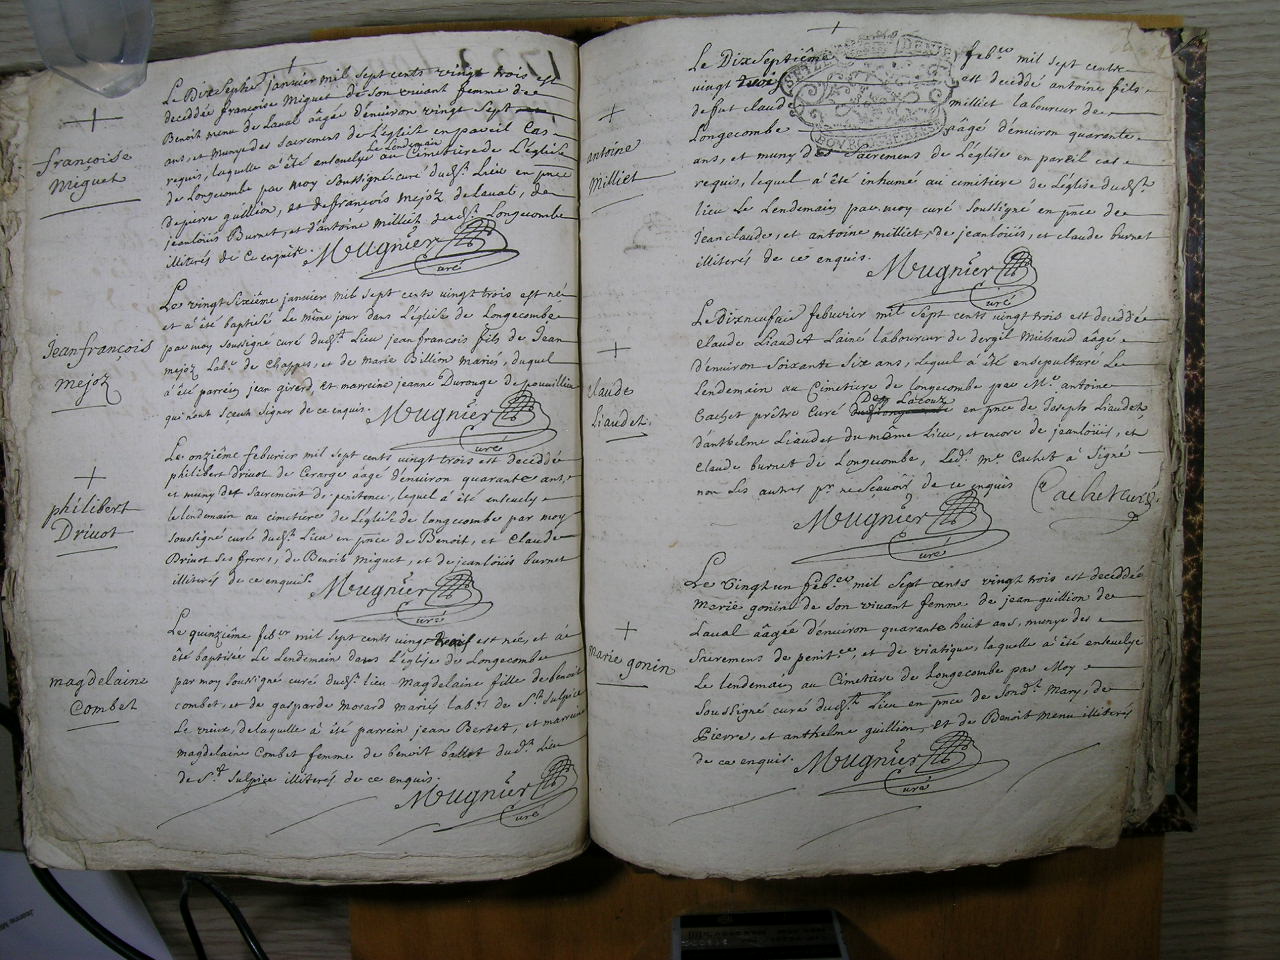 françoise
Miguet
Le Dixsept janvier mil sept cents vingt trois est
deceddée françoise Miguet de son vivant femme de
Benoit menu de Laval aagée d'environ vingt sept
ans, et munye des sacremens de L'église en pareil cas
Le Lendemain
requis, laquelle a été ensevelye au Cimetiere de L'église
de Longecombe par moy soussigné curé dud.t Lieu en pnce
de pierre guillion, et de françois mejoz de laval, de
jean loüis Burnet, et d'antoine milliet de Longecombe
illiterés de ce enquis. Mugnier
Curé
Jean françois
mejoz
Le vingt sixiême janvier mil sept cents vingt trois est né
et a été baptisé Le même jour dans L'église de Longecombe
par moy soussigné curé dud.t Lieu jean françois fils de Jean
mejoz Lab.r de Chappes, et de marie Billion mariés, duquel
a été parrein jean girerd et marreine jeanne Durouge de
qui n'ont sçeuts signer de ce enquis. Mugnier
Curé
philibert
Driuot
Le onziême feburier mil sept cents vingt trois est deceddé
philibert driuot de Cerarge aagé d'environ quarante ans,
et muny des sacrement de penitence, lequel a été ensevely
le lendemain au cimetiere de L'église de Longecombe par moy
soussigné curé dud.t Lieu en pnce de Benoit, et Claude
Driuot ses freres, de Benoit Miguet, et de jean loüis burnet
illiterés de ce enquis. Mugnier
Curé
magdelaine
Combet
Le quinziême feb.er mil sept cents vingt trois est née, et a
été baptisée Le Lendemain dans L'église de Longecombe
par moy soussigné curé dud.t lieu magdelaine fille de benoit
combet, et de gasparde morard mariés lab.rs de S.t Sulpice
Le vieux, de laquelle a été parrein jean Bertet, et marreine
magdelaine Combet femme de benoit ballet dud.t Lieu
de S.t Sulpice illiterés de ce enquis.
Mugnier
Curé
antoine
Milliet
Le Dix septiême feb.er mil sept cents
vingt trois est deceddé antoine fils
de fut claude milliet laboureur de
Longecombe aagé d'environ quarante
ans, et muny des sacremens de L'église en pareil cas
requis, lequel a été inhumé au cimitiere de L'église dud.t
lieu Le Lendemain par moy curé soussigné en pnce de
Jean claude, et antoine milliet, de jean loüis, et claude burnet
illiterés de ce enquis. Mugnier
Curé
claude
Liaudet
Le Dixneufuie febuvier mil sept cents vingt trois est deceddé
claude Liaudet Laine laboureur de dergil Michaud aagé
d'environ soixante six ans, lequel a été ensepulturé Le
Lendemain au Cimetiere de Longecombe par M.re antoine
Cachet prêtre curé Des Lacouz en pnce de Joseph Liaudet,
d'anthelme Liaudet du même Lieu, et encore de jean loüis, et
claude burnet de Longecombe, Led. m.e Cachet a signé
non Les autres p.r ne sçavoir de ce enquis Cachet curé
Mugnier
Curé
marie gonin
Le Vingtun feb.er mil sept cents vingt trois est deceddée
marie gonin de son vivant femme de jean guillion de
Laval aagée d'environ quarante huit ans, munye des
Sacremens de penit.ce, et de viatique, laquelle a été ensevelye
Le lendemain au Cimetiere de Longecombe par Moy
soussigné curé dud.t Lieu en pnce de Mary, de
Pierre, et anthelme guillion, et de Benoit menu illiterés
de ce enquis. Mugnier
Curé